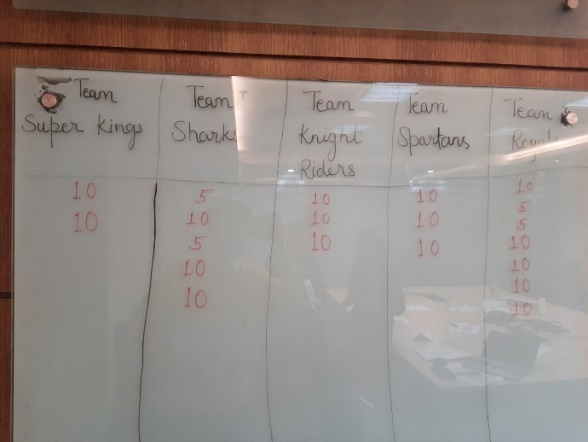 Team
Super Kings
10
10
Team
Sharks
5
10
5
10
10
Team
Knight
Riders
10
10
10
Team
Spartans
10
10
10
Team
10
5
5
10
10
10
10